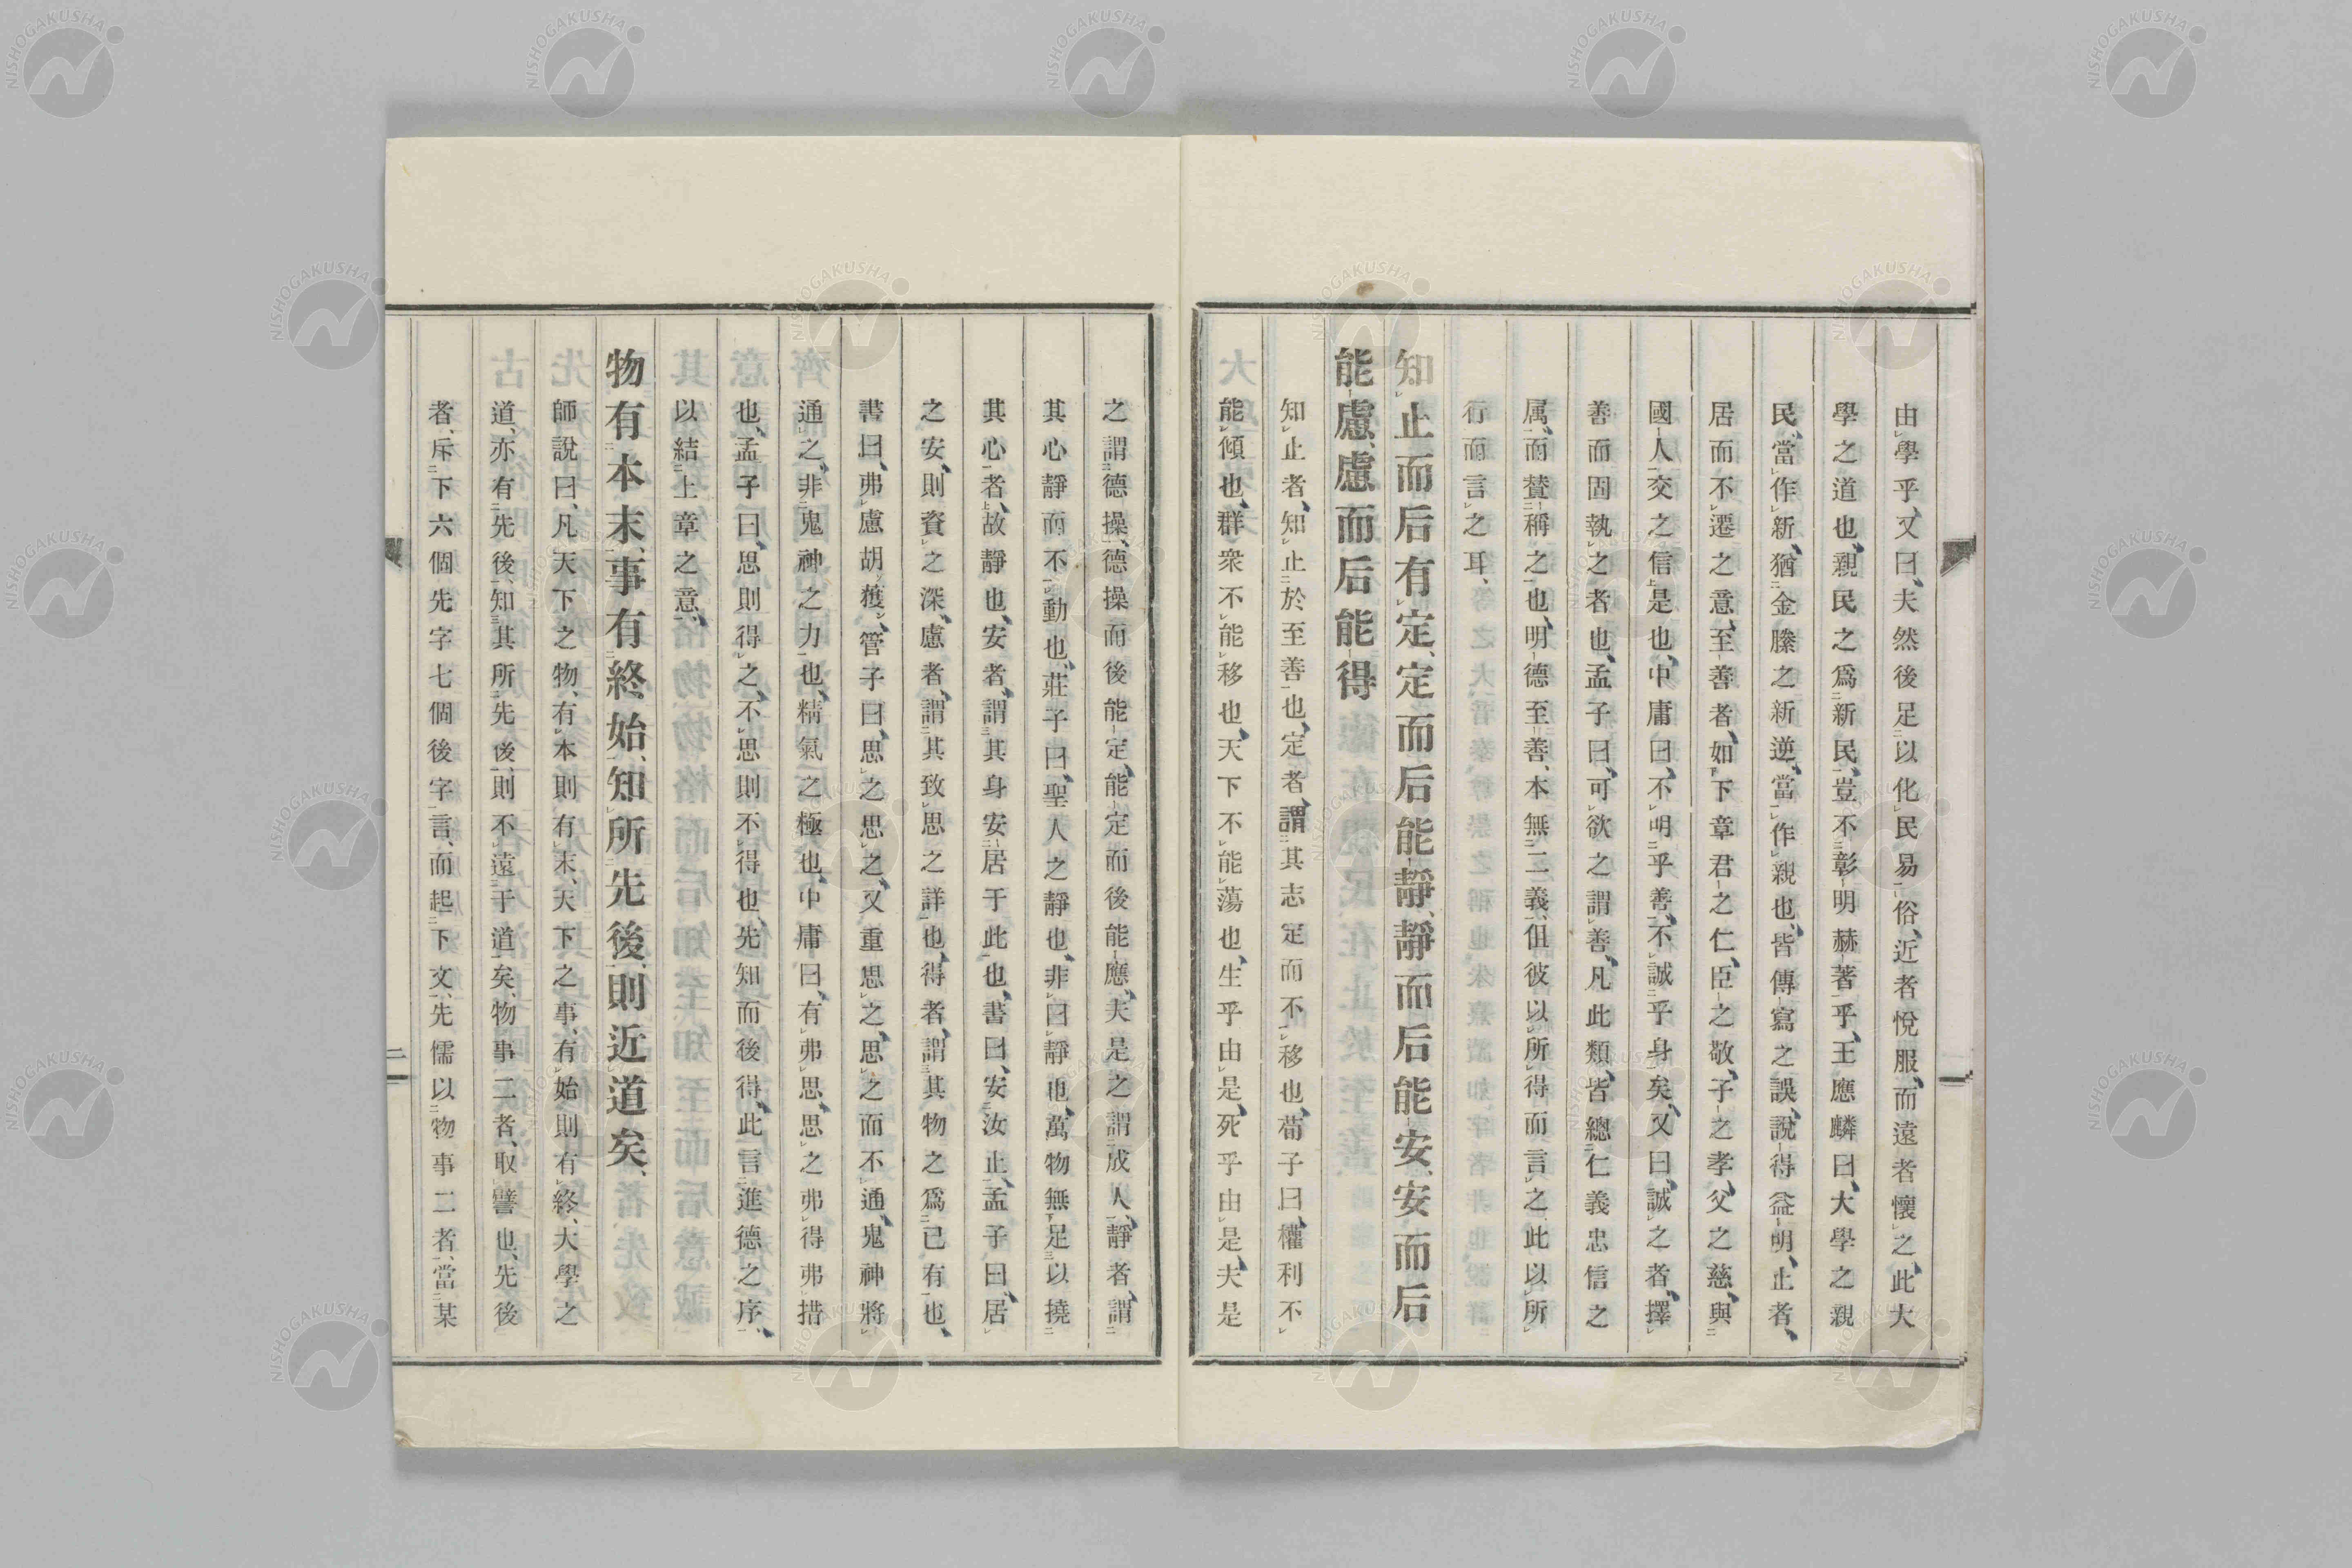 由學乎、又曰、夫然後足以化民易俗、近者悅服、而遠者懷之、此大
學之道也、親民之爲新民、豈不彰明赫著乎、王應麟曰、大學之親
民、當作新、猶金縢之新逆、當作親也、皆傳寫之誤、說得益明、止者、
居而不遷之意、至善者、如下章君之仁、臣之敬、子之孝、父之慈、與
國人交之信是也、中庸曰、不明乎善、不誠乎身矣、又曰、誠之者、擇
善而固執之者也、孟子曰、可欲之謂善、凡此類、皆總仁義忠信之
属、而賛稱之也、明德至善、本無二義、但彼以所得而言之、此以所
行而言之耳、
知止而后有定、定而后能靜、靜而后能安、安而后
能慮、慮而后能得
知止者、知止於至善也、定者、謂其志定而不移也、荀子曰、權利不
能傾也、群衆不能移也、天下不能蕩也、生乎由是、死乎由是、夫是
之謂德操、德操而後能定、能定而後能應、夫是之謂成人、靜者、謂
其心靜而不動也、莊子曰、聖人之靜也、非曰靜也、萬物無足以撓
其心者、故靜也、安者、謂其身安居于此也、書曰、安汝止、孟子曰、居
之安、則資之深、慮者、謂其致思之詳也、得者、謂其物之爲己有也、
書曰、弗慮胡獲、管子曰、思之思之、又重思之、思之而不通、鬼神將
通之、非鬼神之力也、精氣之極也、中庸曰、有弗思、思之弗得弗措
也、孟子曰、思則得之、不思則不得也、先知而後得、此言進德之序、
以結上章之意、
物有本末、事有終始、知所先後、則近道矣、
師說曰、凡天下之物、有本則有末、天下之事、有始則有終、大學之
道、亦有先後、知其所先後、則不遠于道矣、物事二者、取譬也、先後
者、斥下六個先字七個後字言、而起下文、先儒以物事二者、當某
二
NISHOGAKUSHA